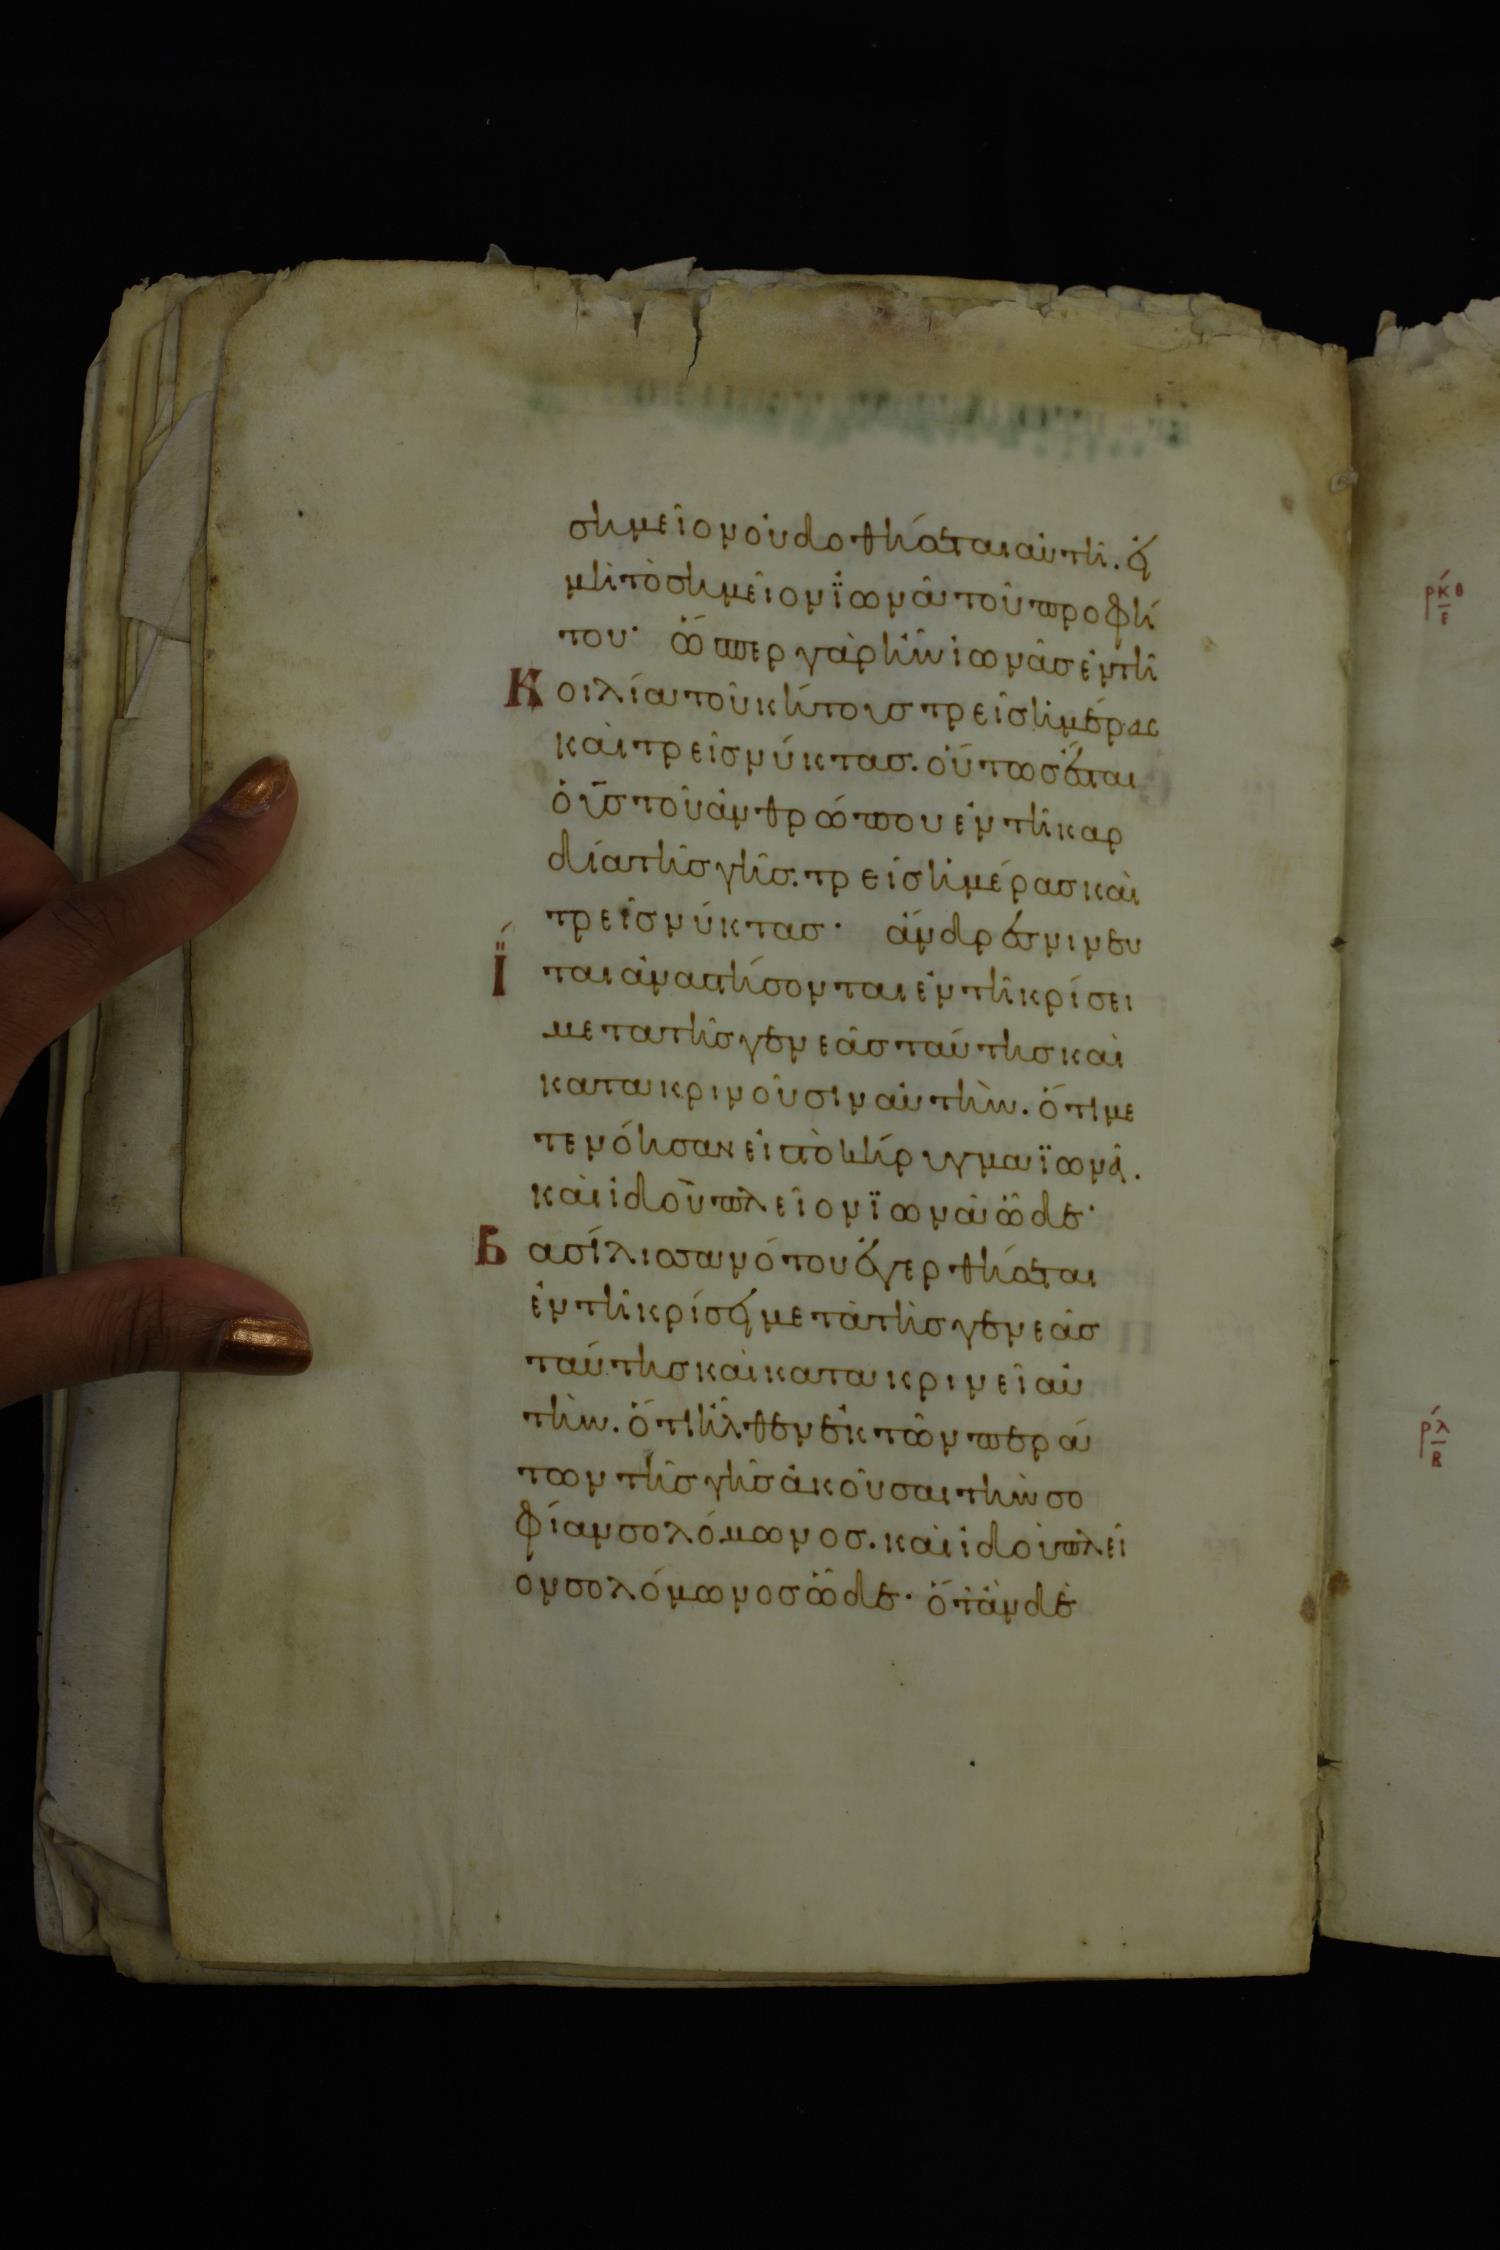 σημεῖον οὐ δοθήσεται αὐτῆ. εἰ
μὴ τὸ σημεῖον ϊωνᾶ τοῦ προφή
του· ὥσπερ γὰρ ἦν ἰωνᾶσ ἐν τῆ
Κοιλία τοῦ κήτουσ τρεῖσ ἡμέρας
καὶ τρεῖσ νύκτασ. οὕτωσ ἔσται
ὁ υ̅σ̅ τοῦ ἀνθρώπου ἐν τῆ καρ
δία τῆσ γῆσ. τρεῖσ ἡμέρασ καὶ
τρεῖσ νύκτασ· ἄνδρεσ νινευ
Ϊ́ται ἀναστήσονται ἐν τῆ κρίσει
μετα τῆσ γενεᾶσ ταύτησ καὶ
κατακρινοῦσιν αὐτὴν. ὅτι με
τενόησαν εἰσ τὸ κήρυγμα ϊωνᾶ.
καὶ ἰδοῦ πλεῖον ϊωνᾶ ὧδε·
Βασίλισσα νότου ἐγερθήσεται
ἐν τῆ κρίσει μετὰ τῆσ γενεᾶσ
ταύτησ καὶ κατακρινεῖ αὐ
τὴν. ὅτι ἦλθεν ἐκ τῶν περά
των τῆσ γῆσ ἀκοῦσαι τὴν σο
φίαν σολόμωνοσ. καὶ ἰδοὺ πλεῖ
ον σολόμωνοσ ὧδε· ὅταν δὲ
ρκθ
ε
ρλ
β